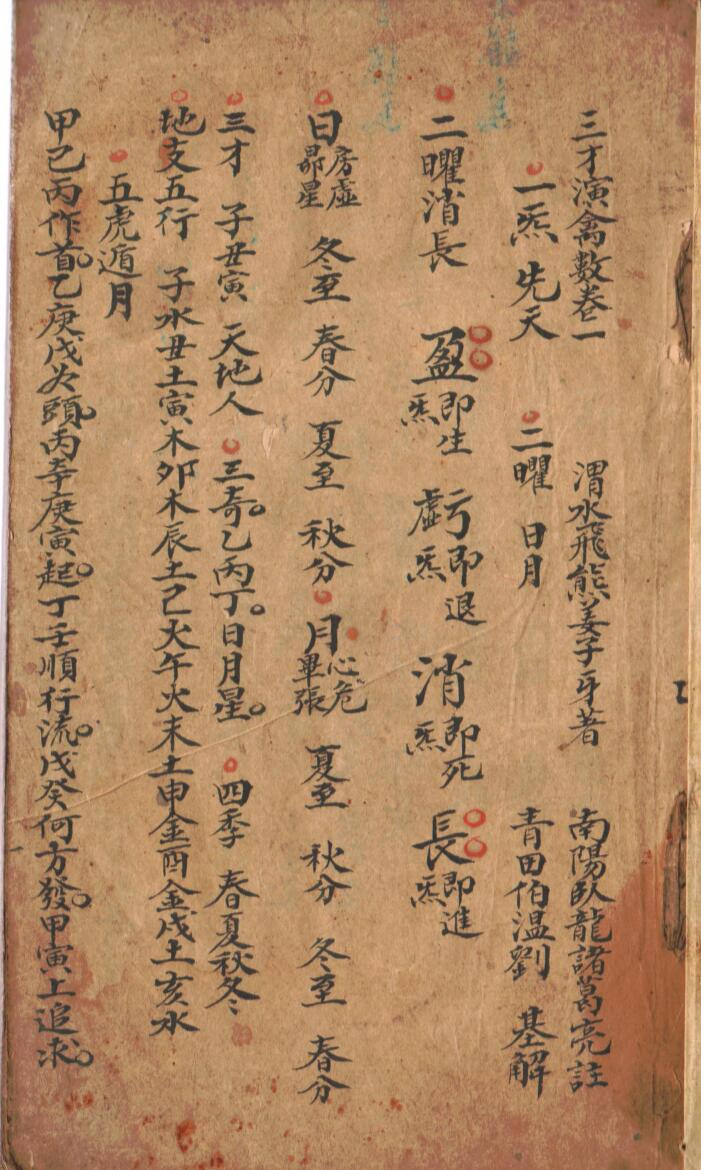 三才演禽數卷一　渭水飛熊姜子牙著　南陽臥龍諸葛亮註
一炁 先天　二曜 日月　青田伯温劉 基解
二曜消長　盈即生炁　虧即退炁　消即死炁　長即進炁
日房虛昴星　冬至　春分　夏至　秋分　月心危畢張　夏至　秋分　冬至　春分
三才　子丑寅　天地人　三奇。乙丙丁。日月星。　四季　春夏秋冬
地支五行　子水丑土寅木夘木辰土巳火午火未土申金酉金戌土亥水
五虎遁月
甲己丙作首。乙庚戊为頭。丙辛庚寅起。丁壬順行流。戊癸何方發。甲寅上追求。